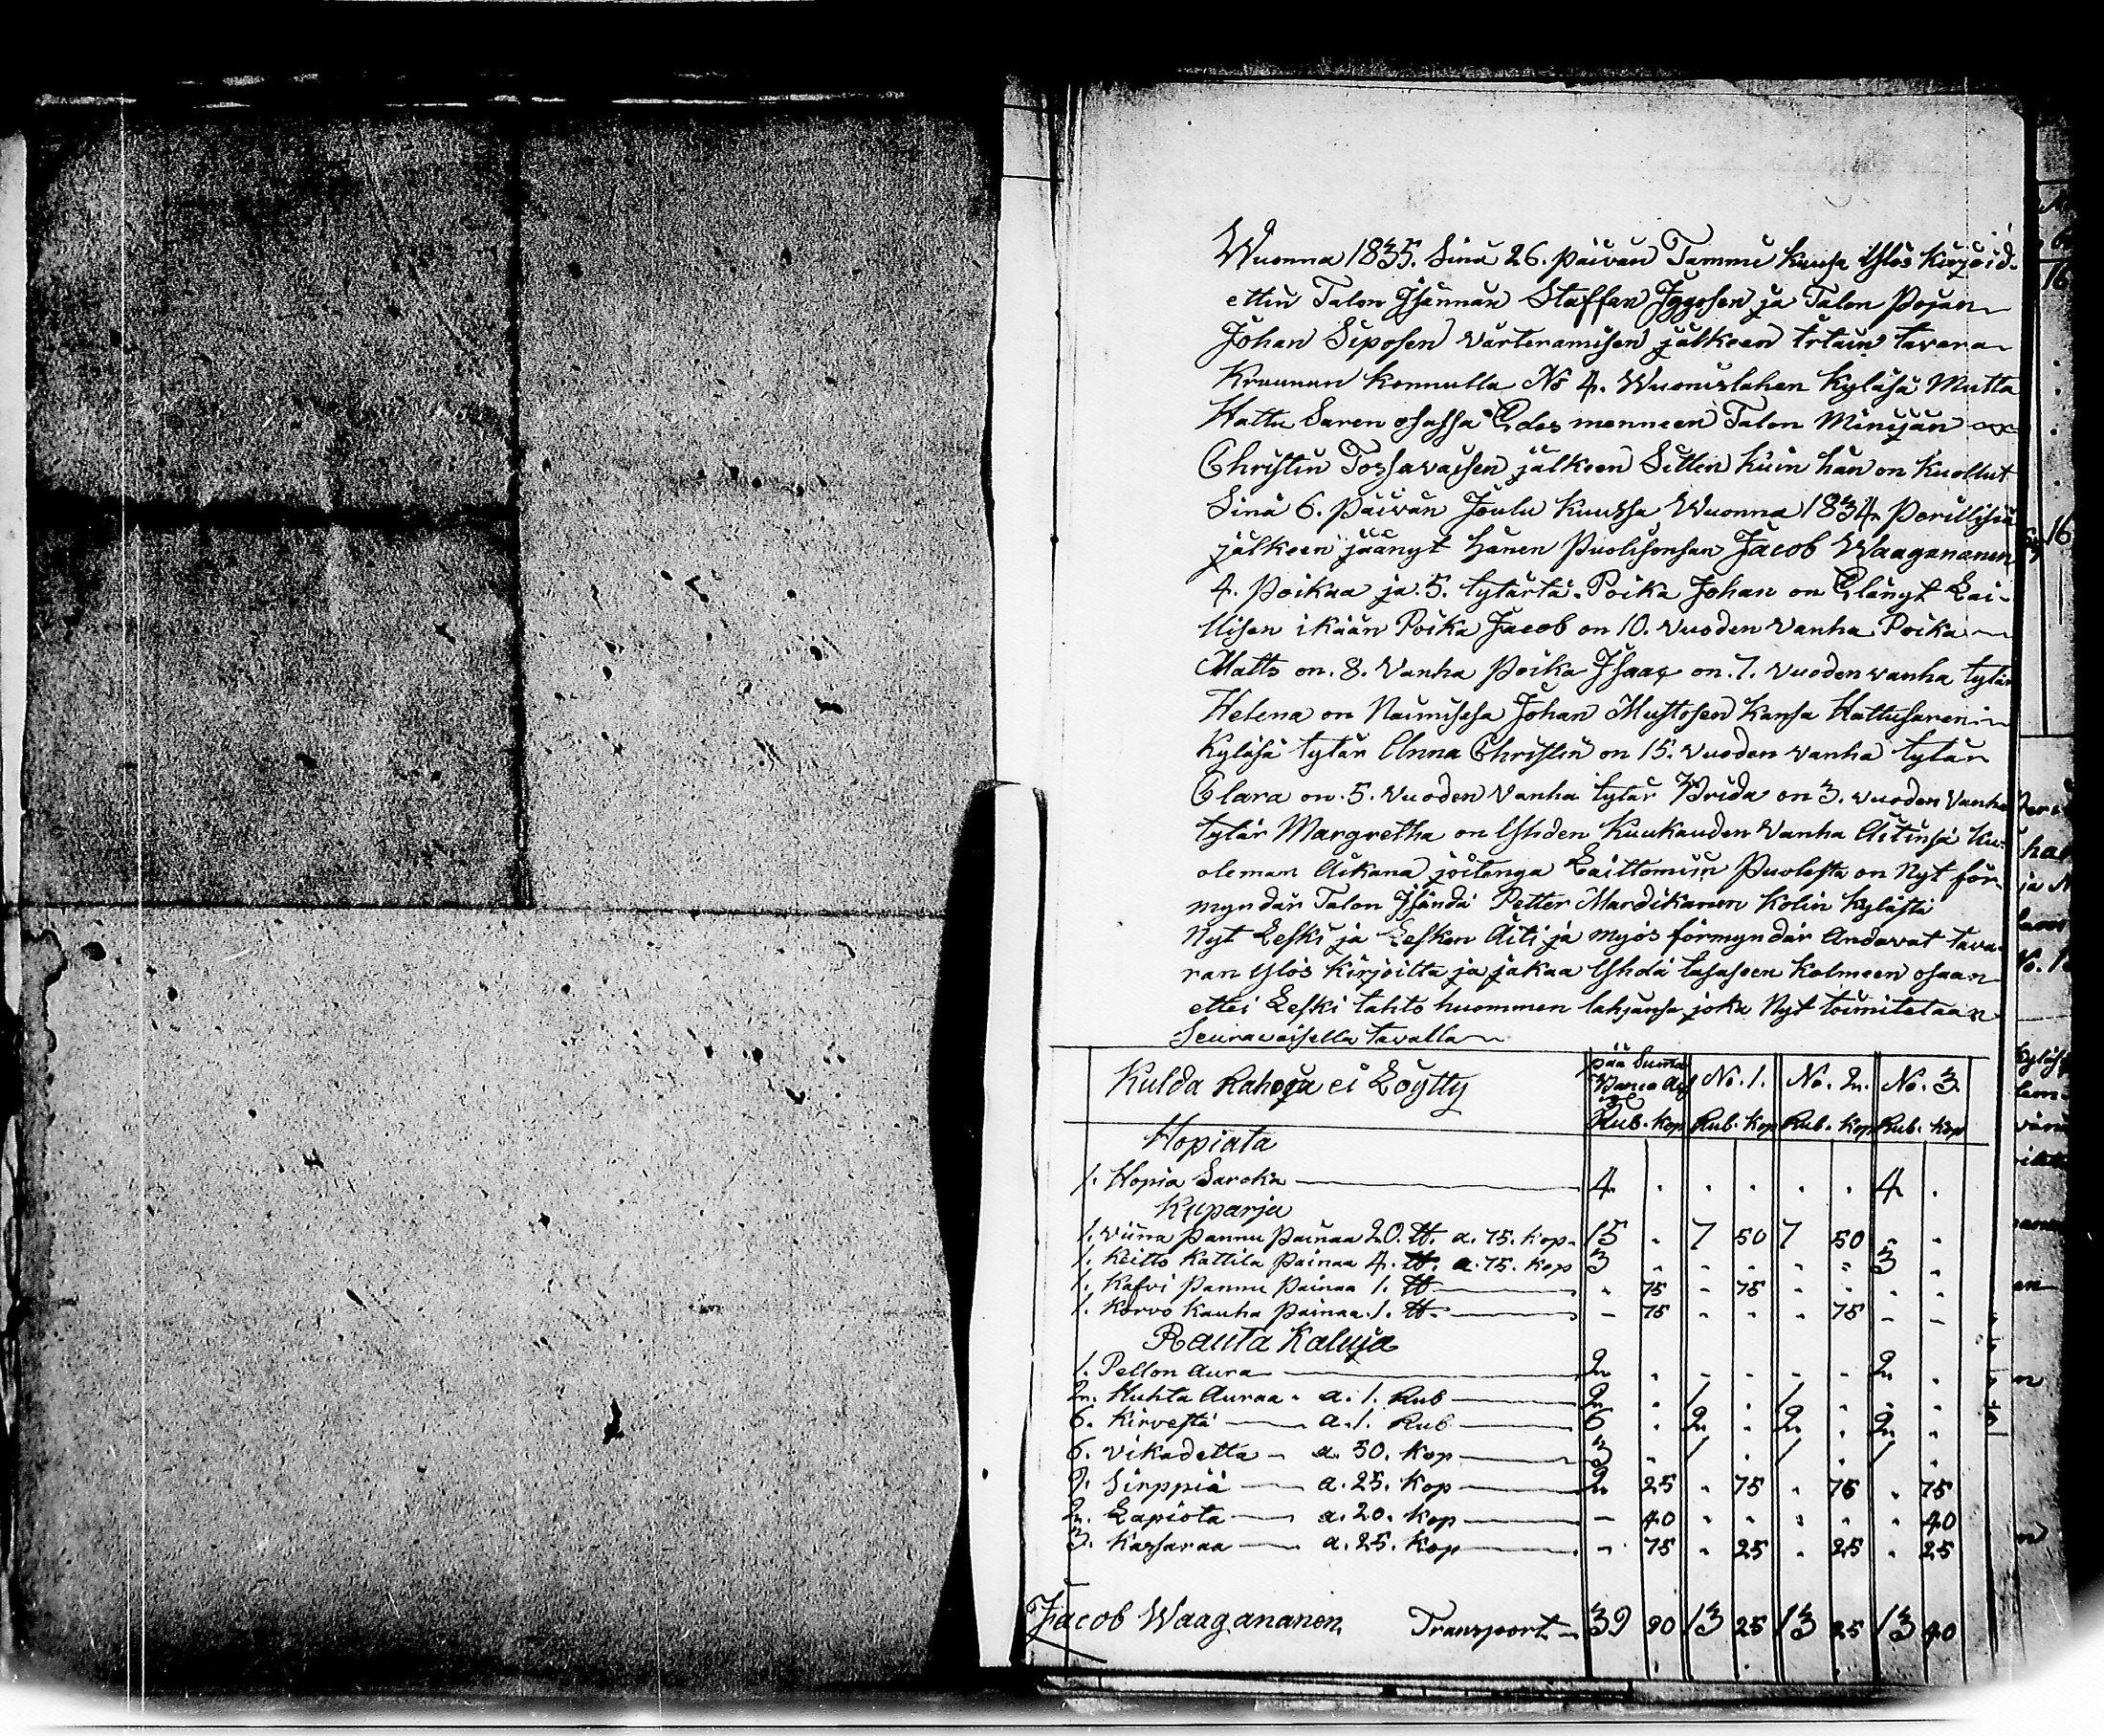 Wuonna 1835. Sinä 26. päivän Tammi kuusa Ylös kirjoid-
ettin Talon Isännän Staffan Iggosen ja Talon Pojan
Johan Siposen värteramisen jälkeen irtain tavara
Kruunun konnulla No 4. Wuonislahen kyläsä Mutta
Hattu Saren osassa Edes menneen Talon Miniján
Christin Tossavaisen jälkeen Sitten kuin hän on kuollut
Sinä 6. päivän Joulu kuussa Wuonna 1834. Perillisiä
jälkeen jäängt hänen Puolisonsan Jacob Waagananen
4. Poikaa ja 5. tytärtä. Poika Johan on Elängt Lai-
llisen ikään Poika Jacob on 10. vuoden vanha Poika
Matts on. 8. vanha Poika Isaac on. 7. vuoden vanha tytär
Helena on Naimisesa Johan Mustosen kansa Hattusaren
kyläsä tytär Anna Christin on 15. vuoden vanha tytär
Clara on. 5. vuoden vanha tytär Brida on 3. vuoden vanha
tytär Margretha on Yhden kuukauden vanha Äitinsä ku-
oleman Aikana joitenga Laittomiin Puolesta on Nyt för-
myndär Talon Isändä Petter Mardikainen Kolin kylästä
Nyt Leski ja Lesken Äiti ja myös förmyndär Andavat tava-
ran ylös kirjoitta ja jakaa Yhdä tasaseen kolmeen osaan
ettei Leski tahto huommen lahjansa joka Nyt toimitetaan
Seuravaisella tavalla
Kulda Rahoja ei Löytty pää Suma No. 1. No. 2. No. 3.
Rub. kop Rub. kop Rub. kop Rub. kop
Hopiata
1. Hopia Saroka 4 . . . . . 4 .
Kuparja
1. viina Pannu Painaa 20. ℔. a. 75. kop. 15 . 7 50 7 50 . .
1. Keitto Kattila Painaa 4. ℔. a. 75. kop 3 . . . . . 3 .
1. Kafvi Pannu Painaa 1. ℔ . 75 . 75 . . . .
1. Korvo Kauha Painaa. 1. ℔. – 75 . . . 75 . .
Rauta Kaluja
1. Pellon Aura 2 . . . . . 2 .
2. Huhta Auraa. a. 1. Rub 2 . 1 . 1 . . .
6. Kirvestä a. 1. Rub 6 . 2 . 2 . 2 .
6. vikadetta a. 50. kop 3 . 1 . 1 . 1 .
9. Sirppiä a. 25. kop 2 25 . 75 . 75 . 75
2. Lapiota a. 20. kop – 40 . . . . . 40
3. Kassaraa a. 25. kop – 75 . 25 . 25 . 25
Jacob Waagananen Transport 39 90 13 25 13 25 13 40